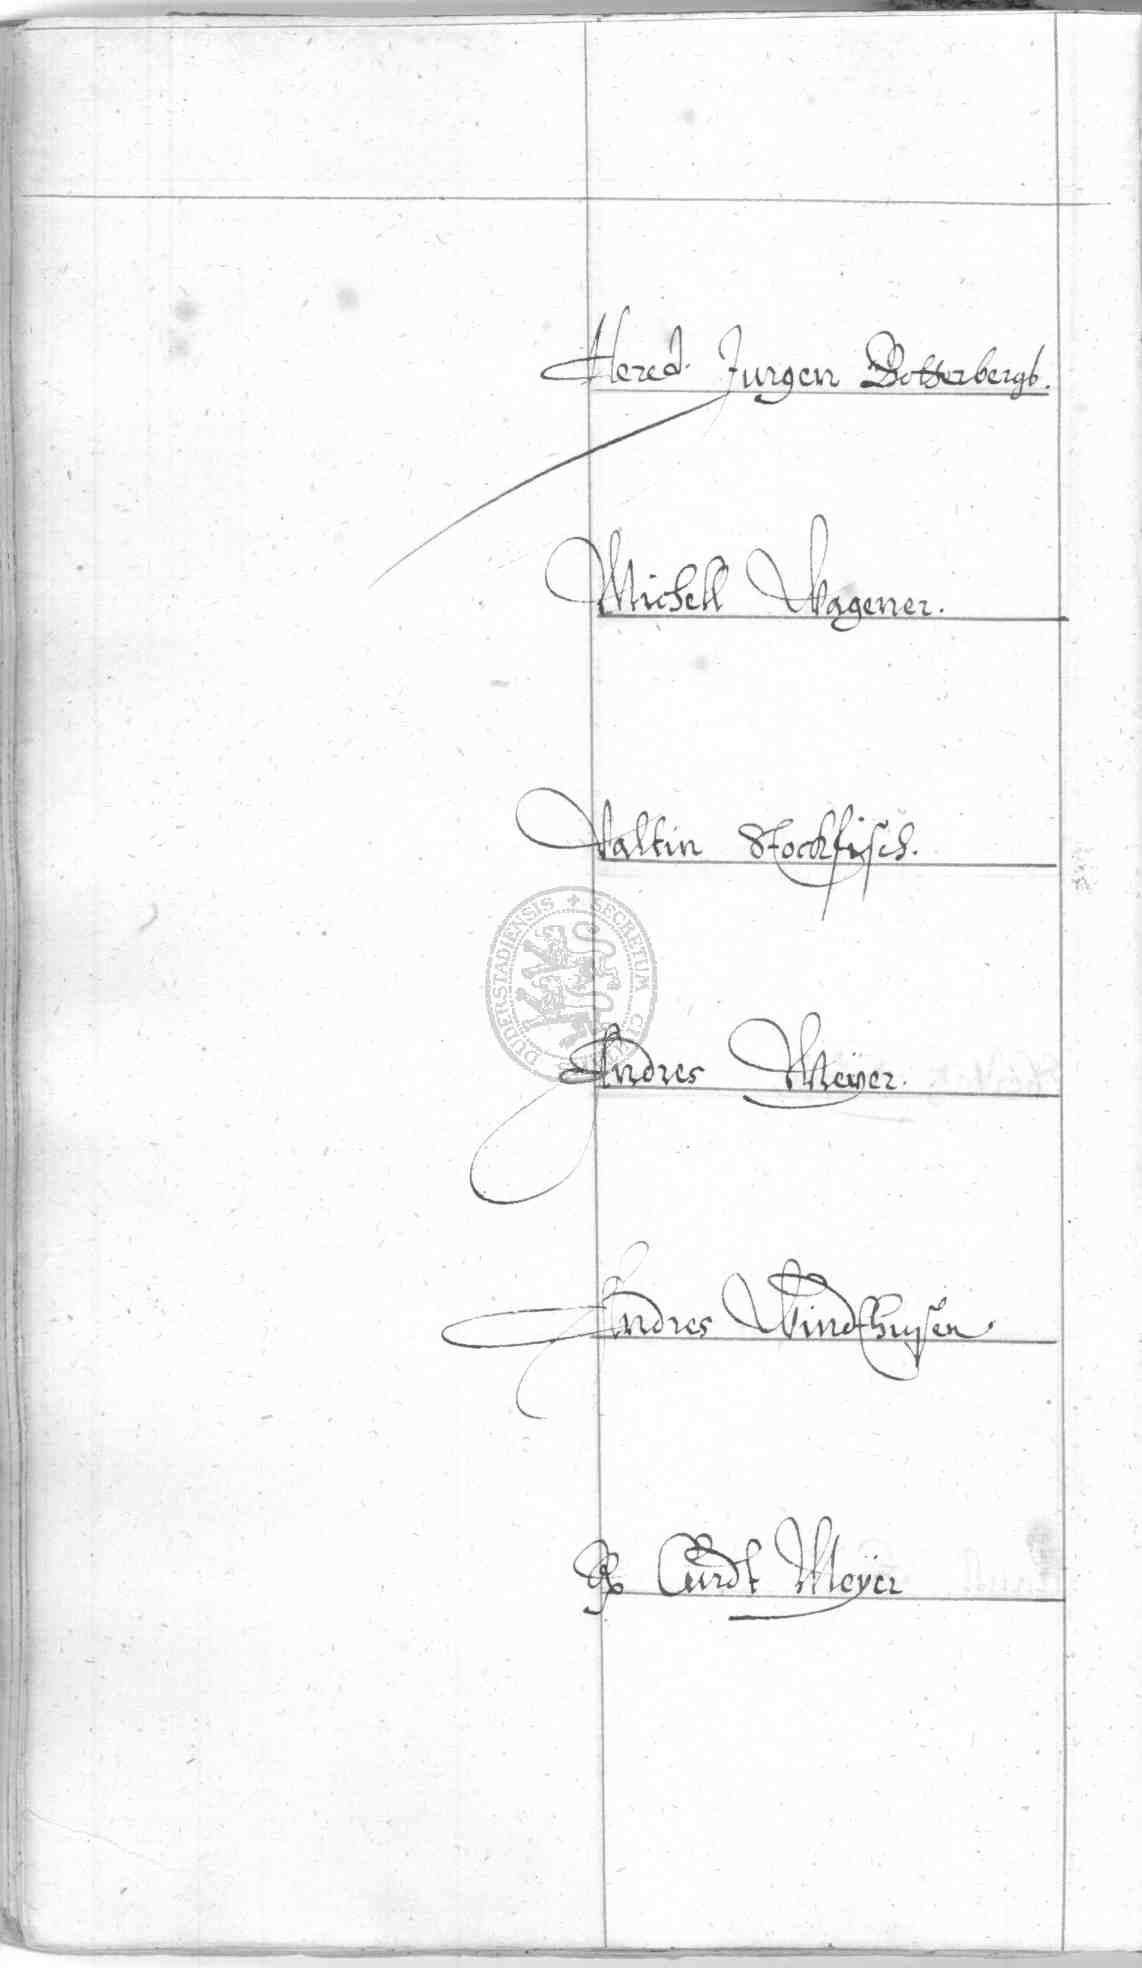 Hered. Jurgen Botterbergs.
Michell Wagener.
Valtin Stockfisch.
DUDERSTADIENSIS + SECRETUM
Andres Meÿer.
Andres Windthusen.
Curdt Meÿer